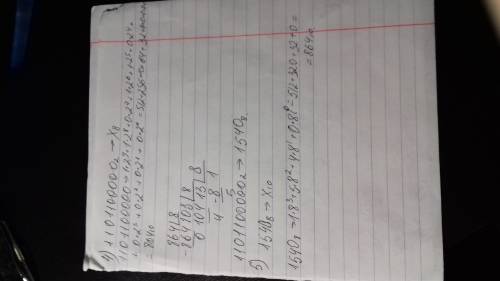 4) 1101100000₂ → X₈
1101100000 → 1·2⁹+1·2⁸+0·2⁷+1·2⁶+1·2⁵+0·2⁴+
+0·2³+0·2²+0·2¹+0·2⁰=512+256+0+64+32+0+0+0+0=
=864₁₀
864 | 8
-864 108 | 8
0 104 13 | 8
4 -8 1
5
1101100000₂ → 1540₈
5) 1540₈ → X₁₀
1540₈ → 1·8³+5·8²+4·8¹+0·8⁰=512+320+32+0=
=864₁₀